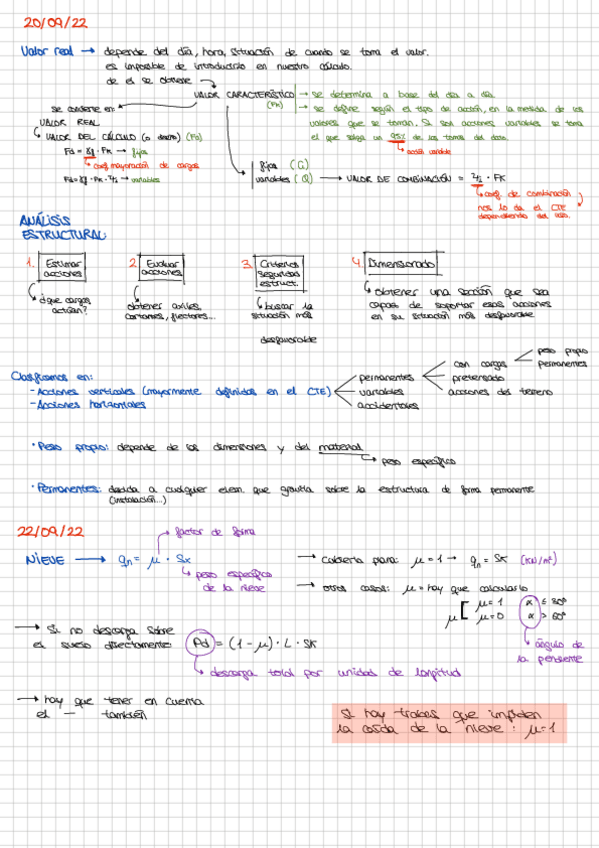 20/09/22
Valor real → depende del día, hora, situación de cuando se toma el valor.
es imposible de introducirlo en nuestro cálculo.
de él se obtiene
VALOR CARACTERÍSTICO (Fk) → se determina a base del día a día.
→ se define según el tipo de acción, en la medida de los
valores que se toman. Si son acciones variables se toma
el que salga un 95% de las tomas del dato.
acción variable
se convierte en:
VALOR REAL
VALOR DEL CÁLCULO (o diseño) (Fd)
Fd = γf · Fk → fijas
coef mayoración de cargas
Fd = γf · Fk · Ψ2 → variables
fijas (G)
variables (Q) → VALOR DE COMBINACIÓN = Ψ2 · Fk
coef. de combinación
nos lo da el CTE
dependiendo del uso.
ANÁLISIS
ESTRUCTURAL:
1. Estimar
acciones
¿que cargas
actúan?
2. Evaluar
acciones
obtener axiles,
cortantes, flectores...
3. Criterios
seguridad
estruct.
buscar la
situación más
desfavorable
4. Dimensionado
obtener una sección que sea
capaz de soportar esas acciones
en su situación más desfavorable
Clasificamos en:
- Acciones verticales (mayormente definidas en el CTE)
- Acciones horizontales
permanentes
variables
accidentales
con cargas
pretensado
acciones del terreno
peso propio
permanentes
· Peso propio: depende de las dimensiones y del material
peso específico
· Permanentes: debida a cualquier elem. que gravita sobre la estructura de forma permanente
(instalación...)
22/09/22
factor de forma
NIEVE → qn = μ · Sk
peso específico
de la nieve
→ cubierta plana: μ = 1 → qn = Sk (KN/m²)
→ otros casos: μ = hay que calcularlo
μ [ μ = 1 α ≤ 30º
μ = 0 α > 60º
ángulo de
la pendiente
→ Si no descarga sobre
el suelo directamente: Pd = (1 - μ) · L · Sk
descarga total por unidad de longitud
→ hay que tener en cuenta
el — también
Si hay trabas que impiden
la caída de la nieve: μ = 1